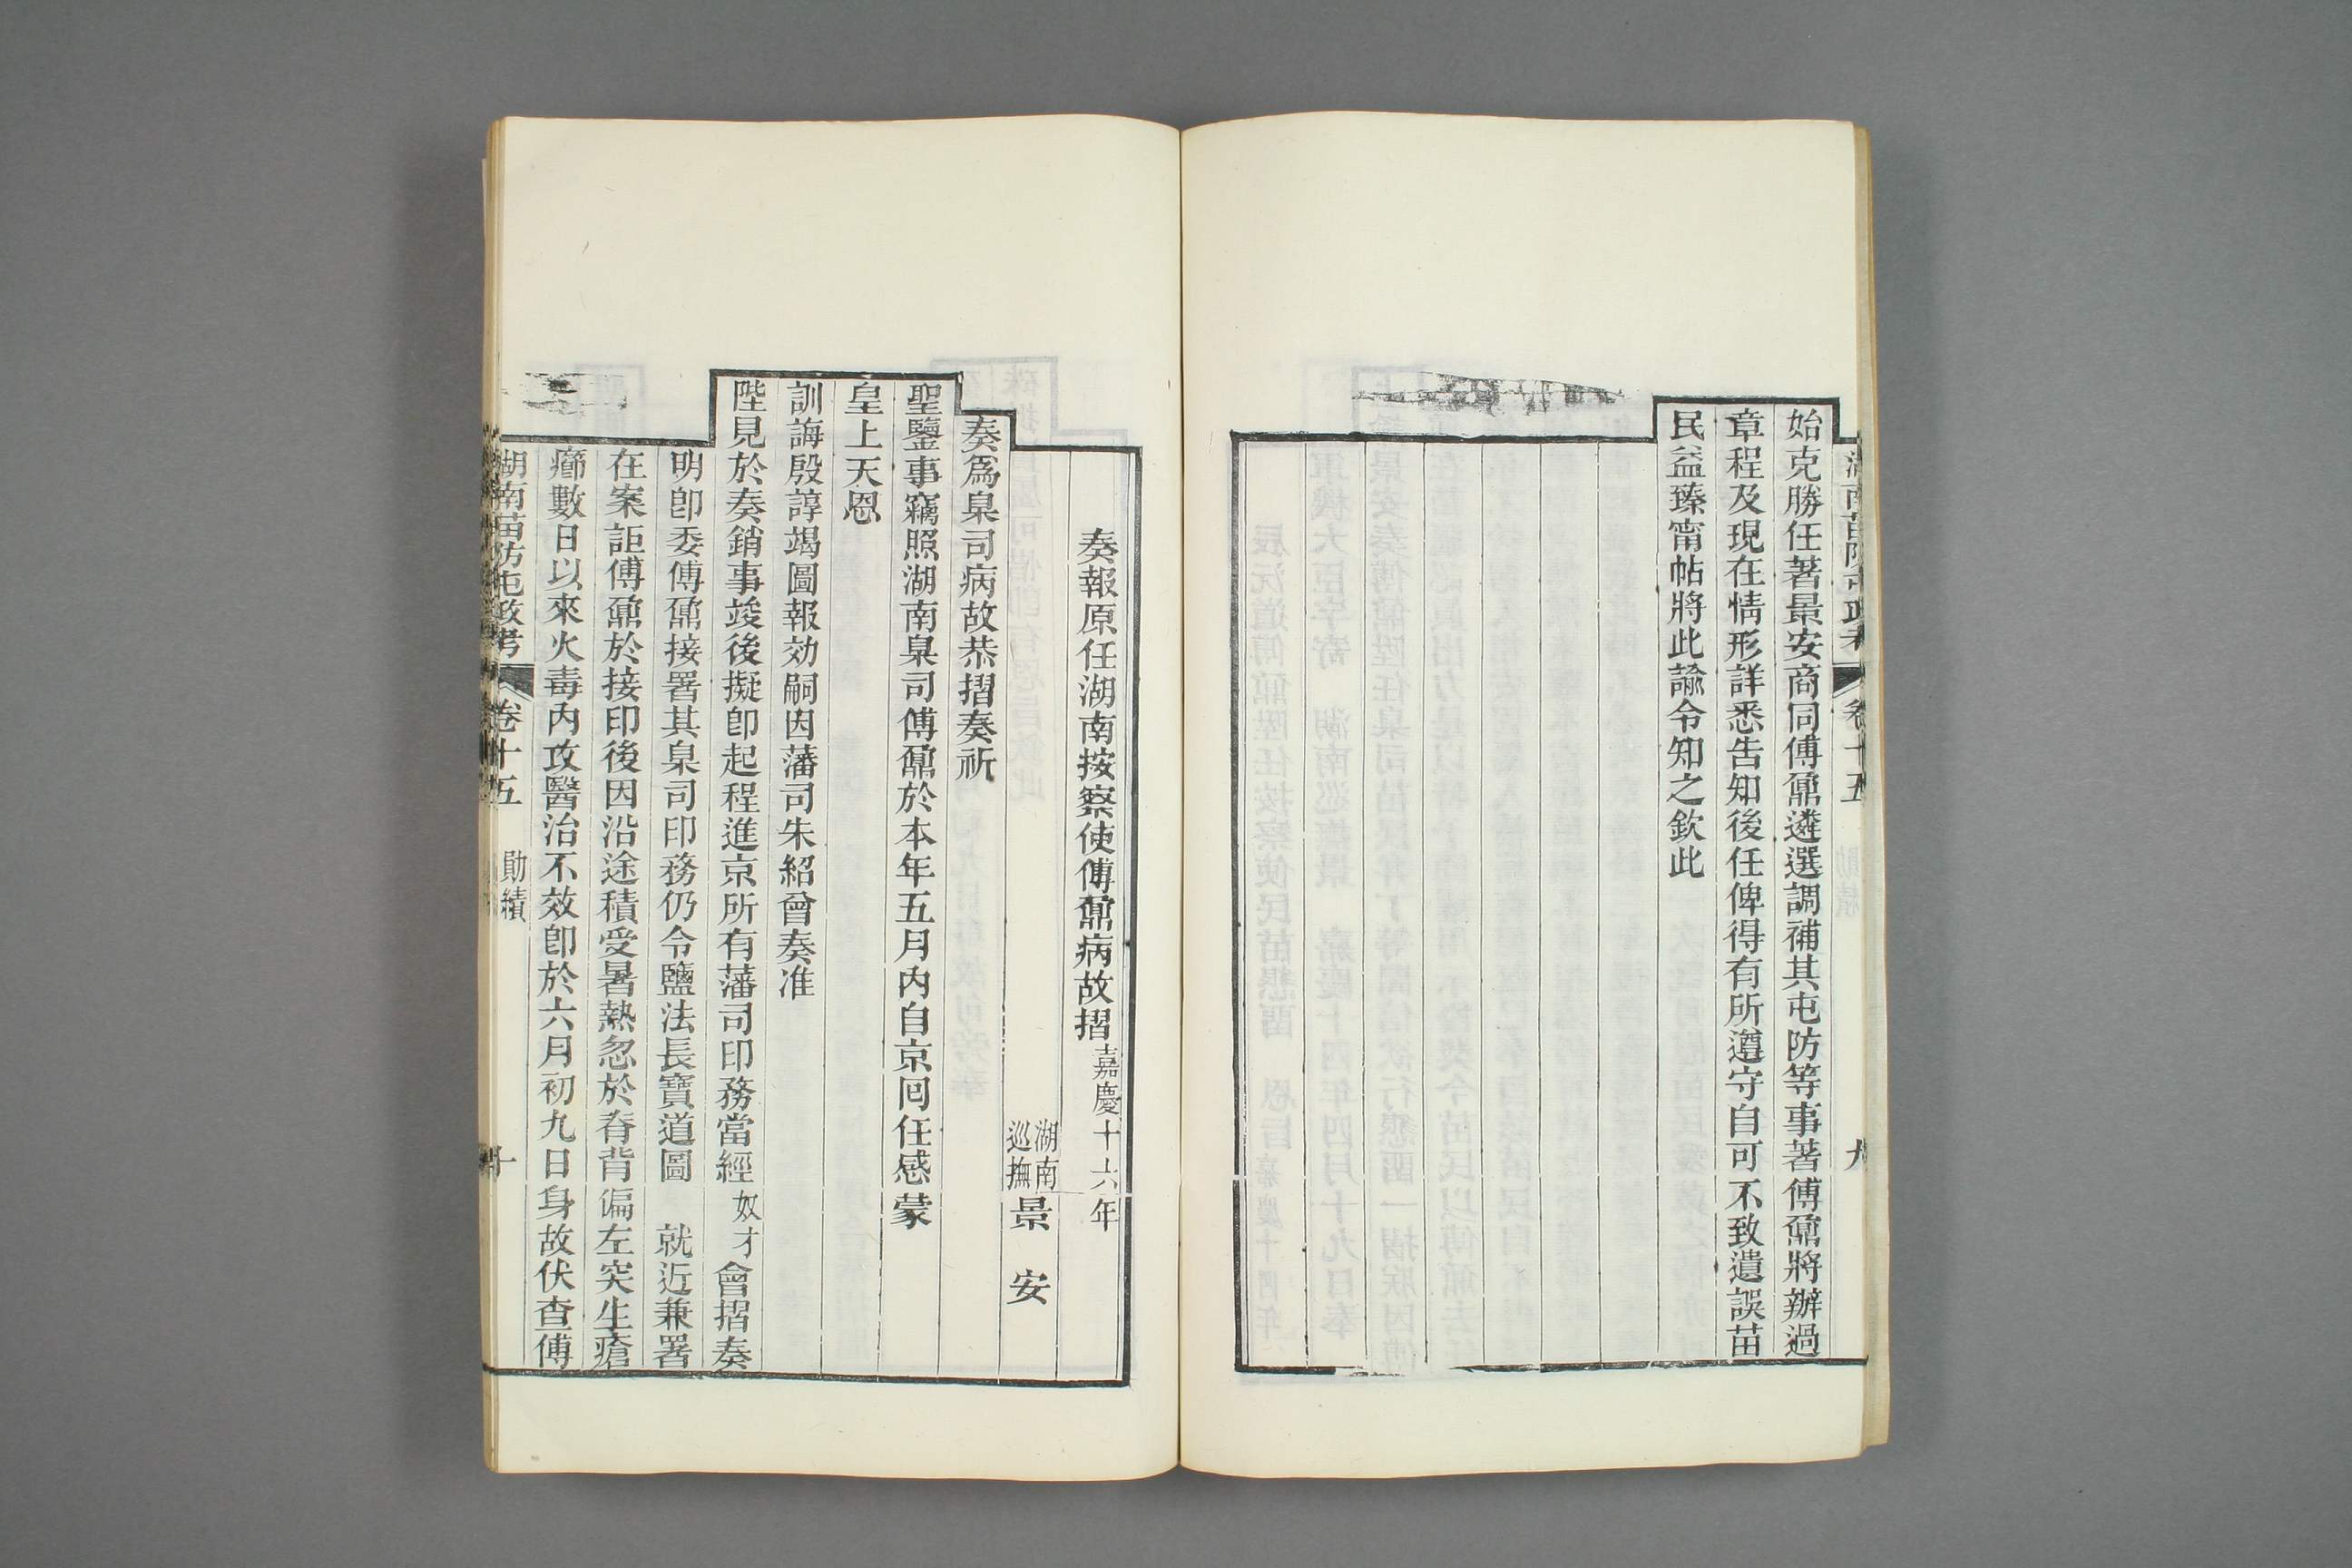 湖南苗防屯政考 卷十五 勛績 九
始克勝任著景安商同傅鼐遴選調補其屯防等事著傅鼐將辦過
章程及現在情形詳悉告知後任俾得有所遵守自可不致遺誤苗
民益臻甯帖將此諭令知之欽此
奏報原任湖南按察使傅鼐病故摺嘉慶十六年
湖南巡撫景 安
奏爲臬司病故恭摺奏祈
聖鑒事竊照湖南臬司傅鼐於本年五月內自京囘任感蒙
皇上天恩
訓誨殷諄竭圖報効嗣因藩司朱紹曾奏准
陛見於奏銷事竣後擬卽起程進京所有藩司印務當經奴才會摺奏
明卽委傅鼐接署其臬司印務仍令鹽法長寶道圖 就近兼署
在案詎傅鼐於接印後因沿途積受暑熱忽於脊背偏左突生瘡
癤數日以來火毒內攻醫治不效卽於六月初九日身故伏查傅
湖南苗防屯政考 卷十五 勛績 十